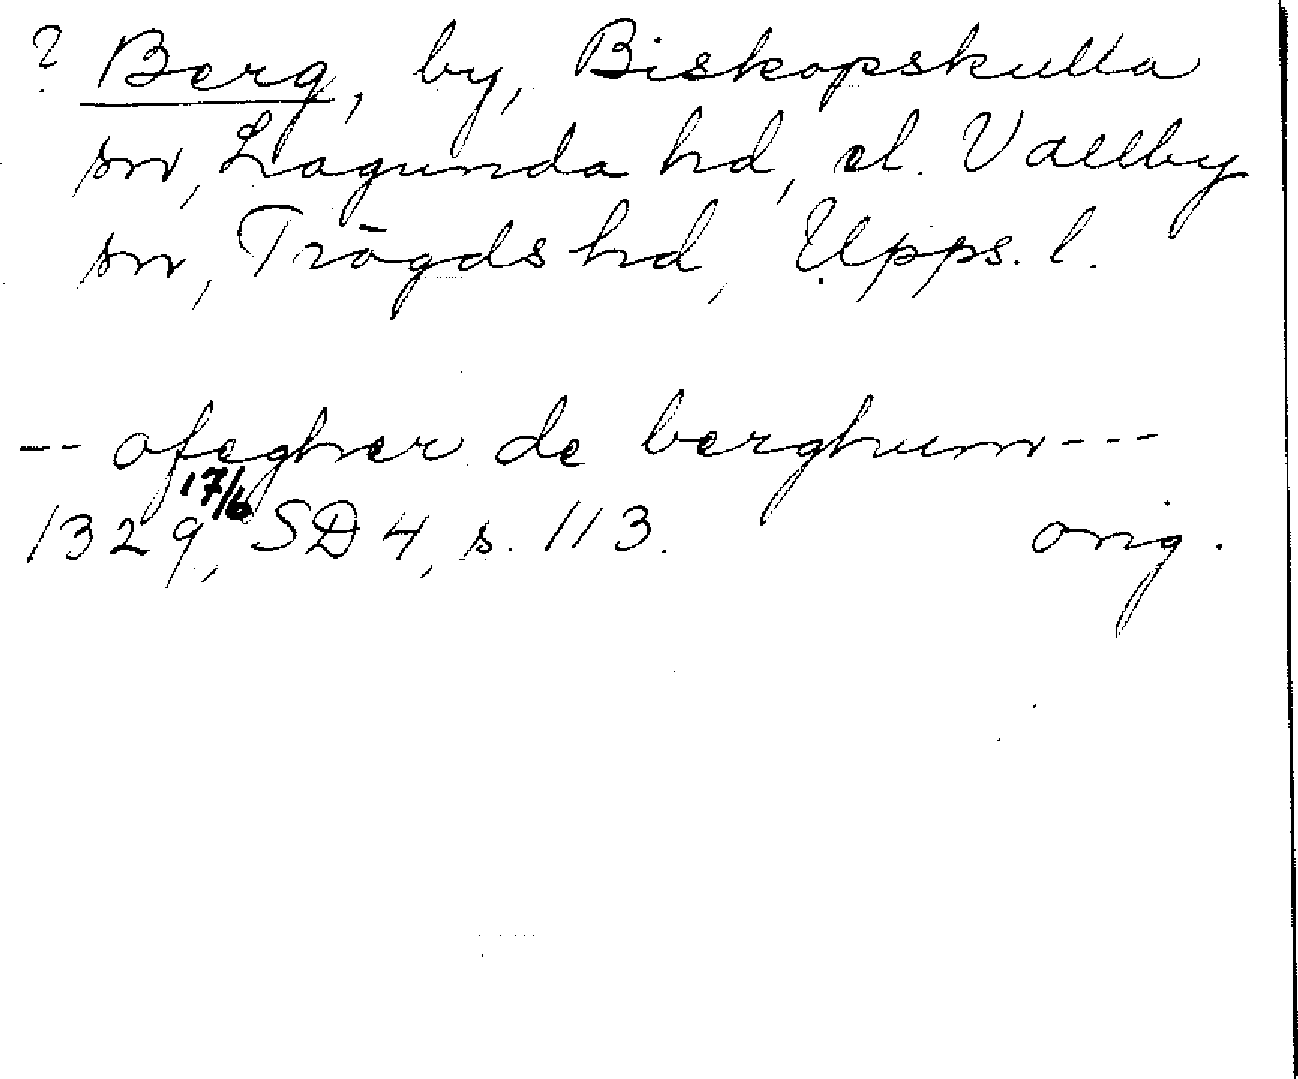 ? Berg, by, Biskopskulla
sn, Lagunda hd, el. Vallby
sn, Trögds hd, Upps. l.
-- ofegher de berghum ---
17/6
1329, SD 4, s. 113. orig.